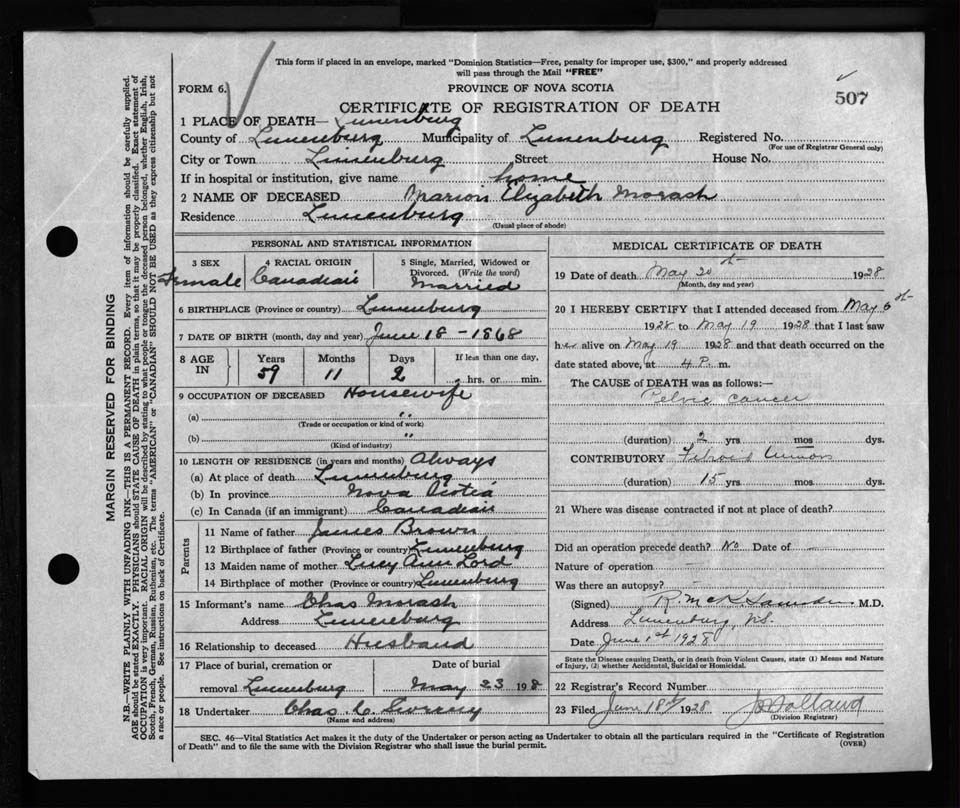 This form if placed in an envelope, marked "Dominion Statistics—Free, penalty for improper use, $300," and properly addressed
will pass through the Mail "FREE"
FORM 6. PROVINCE OF NOVA SCOTIA 507
CERTIFICATE OF REGISTRATION OF DEATH
1 PLACE OF DEATH— Lunenburg
County of Lunenburg Municipality of Lunenburg Registered No.
(For use of Registrar General only)
City or Town Lunenburg Street House No.
If in hospital or institution, give name home
2 NAME OF DECEASED Marion Elizabeth Morash
Residence Lunenburg
(Usual place of abode)
PERSONAL AND STATISTICAL INFORMATION
3 SEX Female
4 RACIAL ORIGIN Canadian
5 Single, Married, Widowed or Divorced. (Write the word) Married
6 BIRTHPLACE (Province or country) Lunenburg
7 DATE OF BIRTH (month, day and year) June 18 - 1868
8 AGE IN Years 59 Months 11 Days 2 If less than one day, hrs. or min.
9 OCCUPATION OF DECEASED Housewife
(a) "
(Trade or occupation or kind of work)
(b) "
(Kind of industry)
10 LENGTH OF RESIDENCE (in years and months) Always
(a) At place of death Lunenburg
(b) In province Nova Scotia
(c) In Canada (if an immigrant) Canadian
Parents
11 Name of father James Brown
12 Birthplace of father (Province or country) Lunenburg
13 Maiden name of mother Lucy Ann Lord
14 Birthplace of mother (Province or country) Lunenburg
15 Informant's name Chas Morash
Address Lunenburg
16 Relationship to deceased Husband
17 Place of burial, cremation or Date of burial
removal Lunenburg May 23 198
18 Undertaker Chas. C.
(Name and address)
MEDICAL CERTIFICATE OF DEATH
19 Date of death May 20th 1928
(Month, day and year)
20 I HEREBY CERTIFY that I attended deceased from May 6th
1928 to May 19 1928 that I last saw
her alive on May 19 1928 and that death occurred on the
date stated above, at 4 P. m.
The CAUSE of DEATH was as follows:—
Pelvic cancer
(duration) 2 yrs mos dys.
CONTRIBUTORY Fibroid
(duration) 15 yrs. mos. dys.
21 Where was disease contracted if not at place of death?
Did an operation precede death? No Date of —
Nature of operation —
Was there an autopsy? —
(Signed) R. McK. M.D.
Address Lunenburg, N.S.
Date June 1st 1928
State the Disease causing Death, or in death from Violent Causes, state (1) Means and Nature
of Injury, (2) whether Accidental, Suicidal or Homicidal.
22 Registrar's Record Number
23 Filed June 18th 1928 Holland
(Division Registrar)
SEC. 46—Vital Statistics Act makes it the duty of the Undertaker or person acting as Undertaker to obtain all the particulars required in the "Certificate of Registration
of Death" and to file the same with the Division Registrar who shall issue the burial permit. (OVER)
MARGIN RESERVED FOR BINDING
N.B.—WRITE PLAINLY WITH UNFADING INK—THIS IS A PERMANENT RECORD. Every item of information should be carefully supplied.
AGE should be stated EXACTLY. PHYSICIANS should STATE CAUSE OF DEATH in plain terms, so that it may be properly classified. Exact statement of
OCCUPATION is very important. RACIAL ORIGIN will be described by stating to what people or tongue the deceased person belonged, whether English, Irish,
Scotch, French, German, Russian, Ruthenian, etc. The terms "AMERICAN" or "CANADIAN" SHOULD NOT BE USED as they express citizenship but not
a race or people. See instructions on back of Certificate.